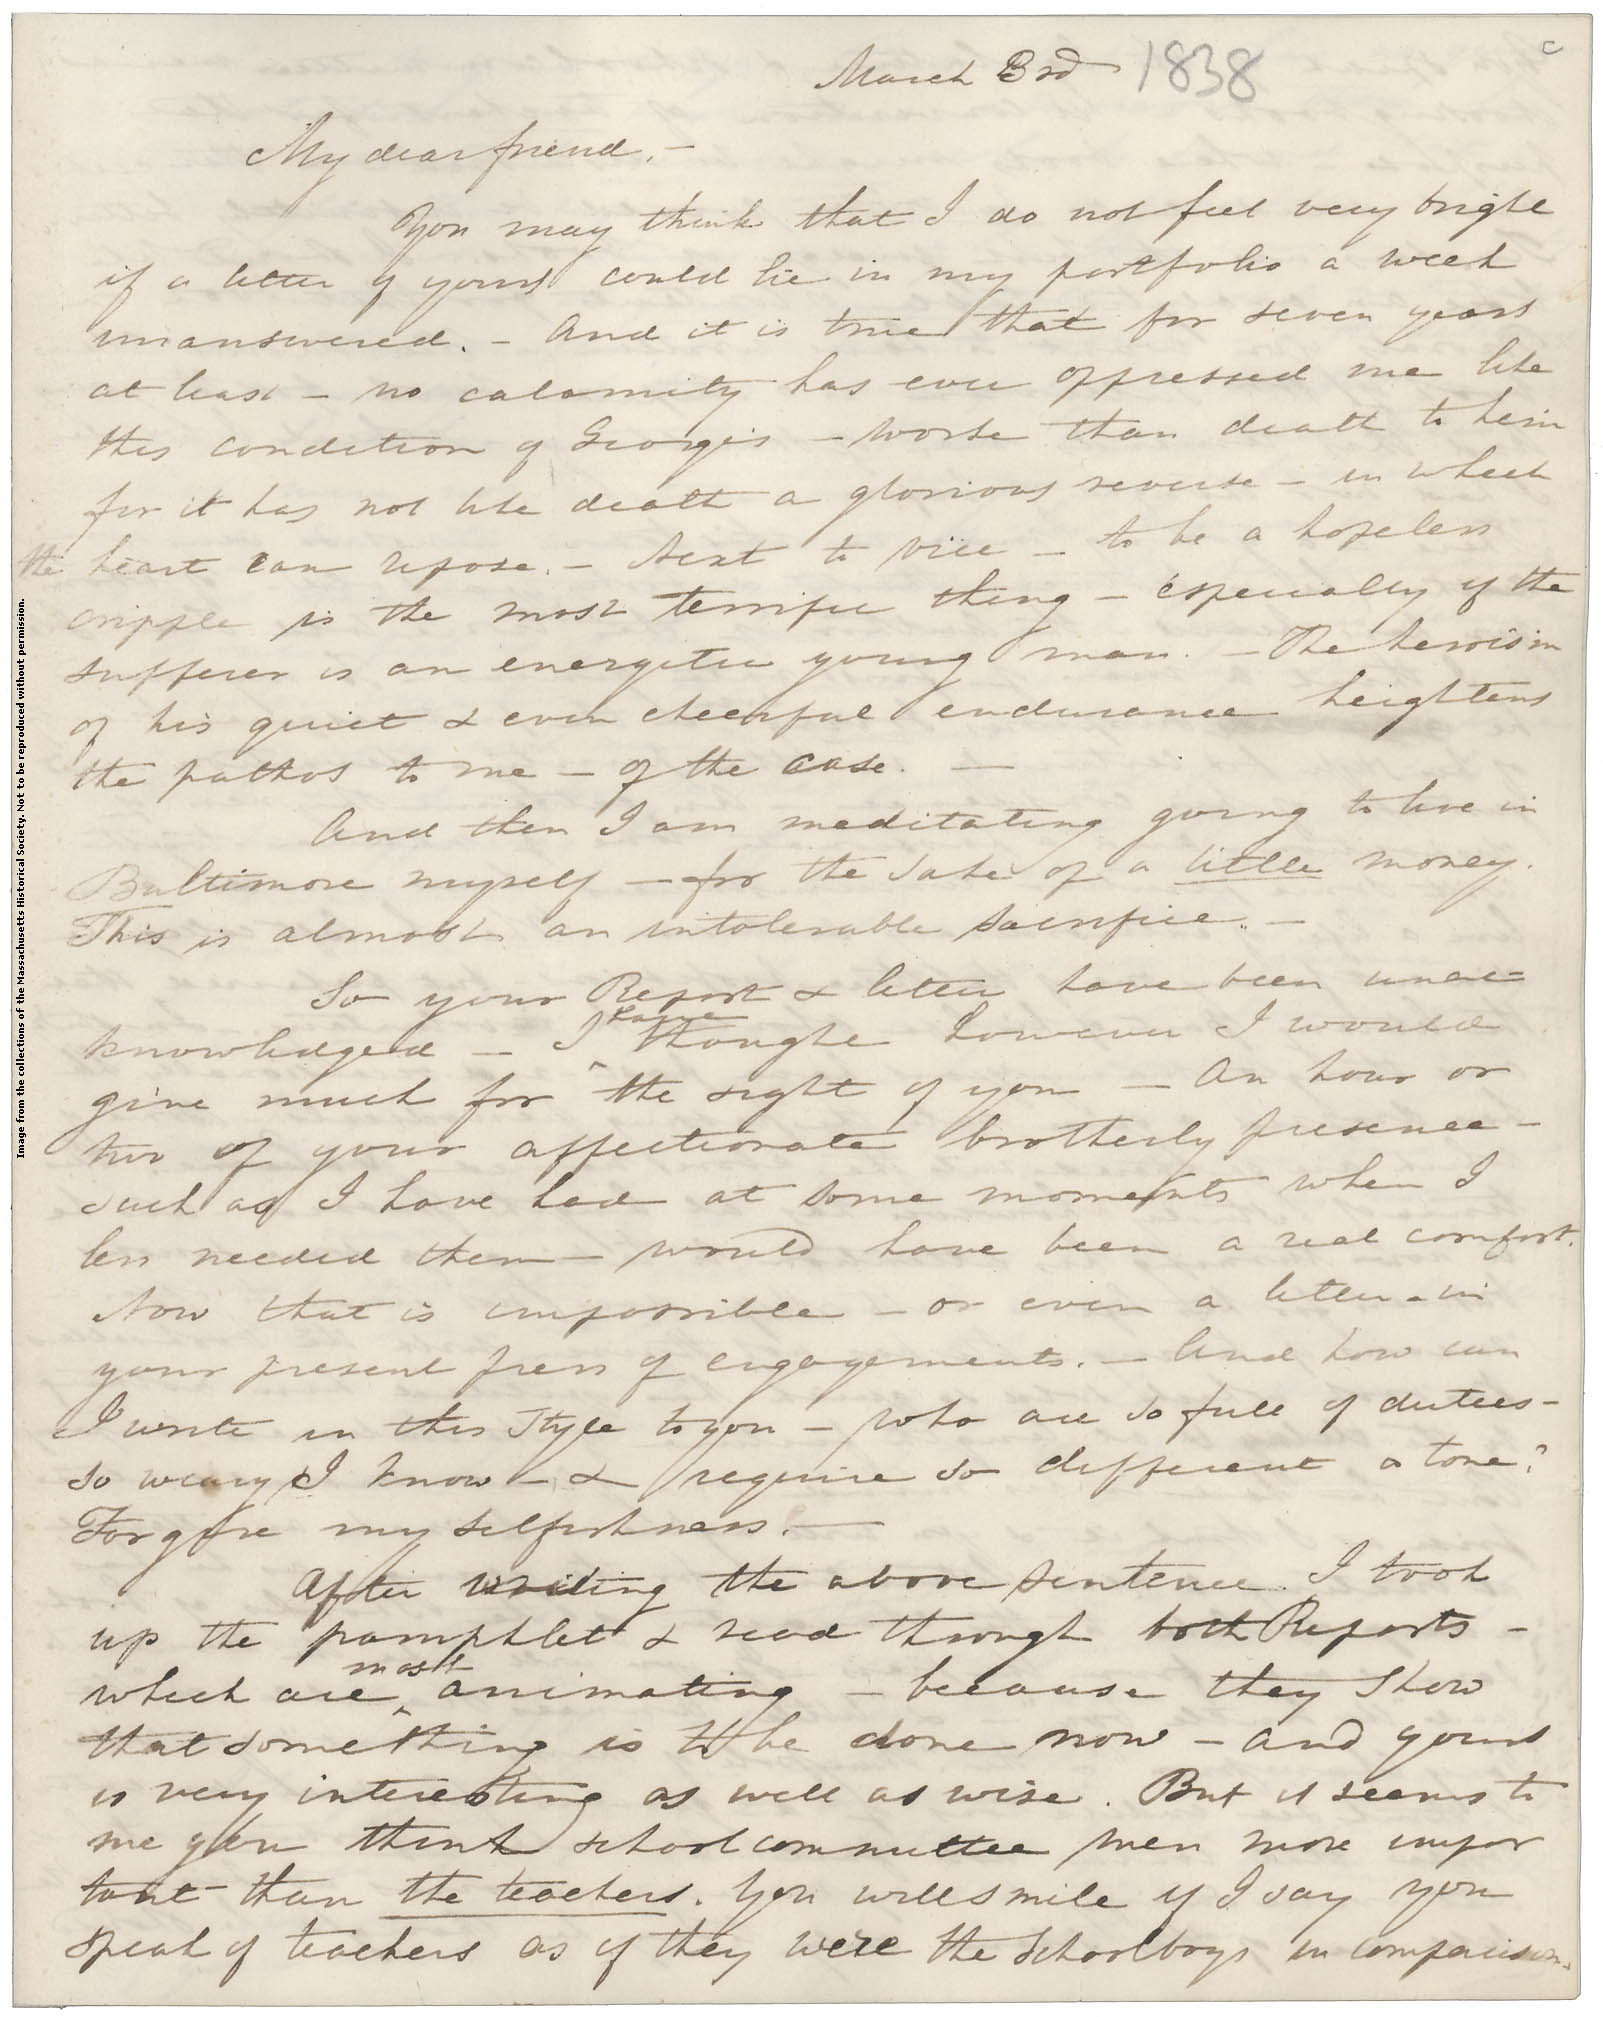 March 3rd 1838
c
My dear friend. —
You may think that I do not feel very bright
if a letter of yours could lie in my portfolio a week
unanswered. — And it is true that for seven years
at least — no calamity has ever oppressed me like
this condition of George's — worse than death to him
for it has not like death a glorious reverse — in which
the heart can repose. — Next to vice — to be a hopeless
cripple is the most terrific thing — especially if the
sufferer is an energetic young man. — The heroism
of his quiet & even cheerful endurance heightens
the pathos to me — of the case. —
And then I am meditating going to live in
Baltimore myself — for the sake of a little money.
This is almost an intolerable sacrifice. —
So your Report & letter have been unac-
knowledged — I have thought however I would
give much for the sight of you — An hour or
two of your affectionate brotherly presence —
such as I have had at some moments when I
less needed them — would have been a real comfort.
Now that is impossible — or even a letter — in
your present press of engagements. — And how can
I write in this style to you — who are so full of duties —
so weary I know — & require so different a tone?
Forgive my selfishness. —
After writing the above sentence I took
up the pamphlet & read through both Reports —
which are most animating — because they show
that something is to be done now — and yours
is very interesting as well as wise. But it seems to
me you think school committee men more impor
tant than the teachers. You will smile if I say you
speak of teachers as if they were the schoolboys in comparison.
Image from the collections of the Massachusetts Historical Society. Not to be reproduced without permission.